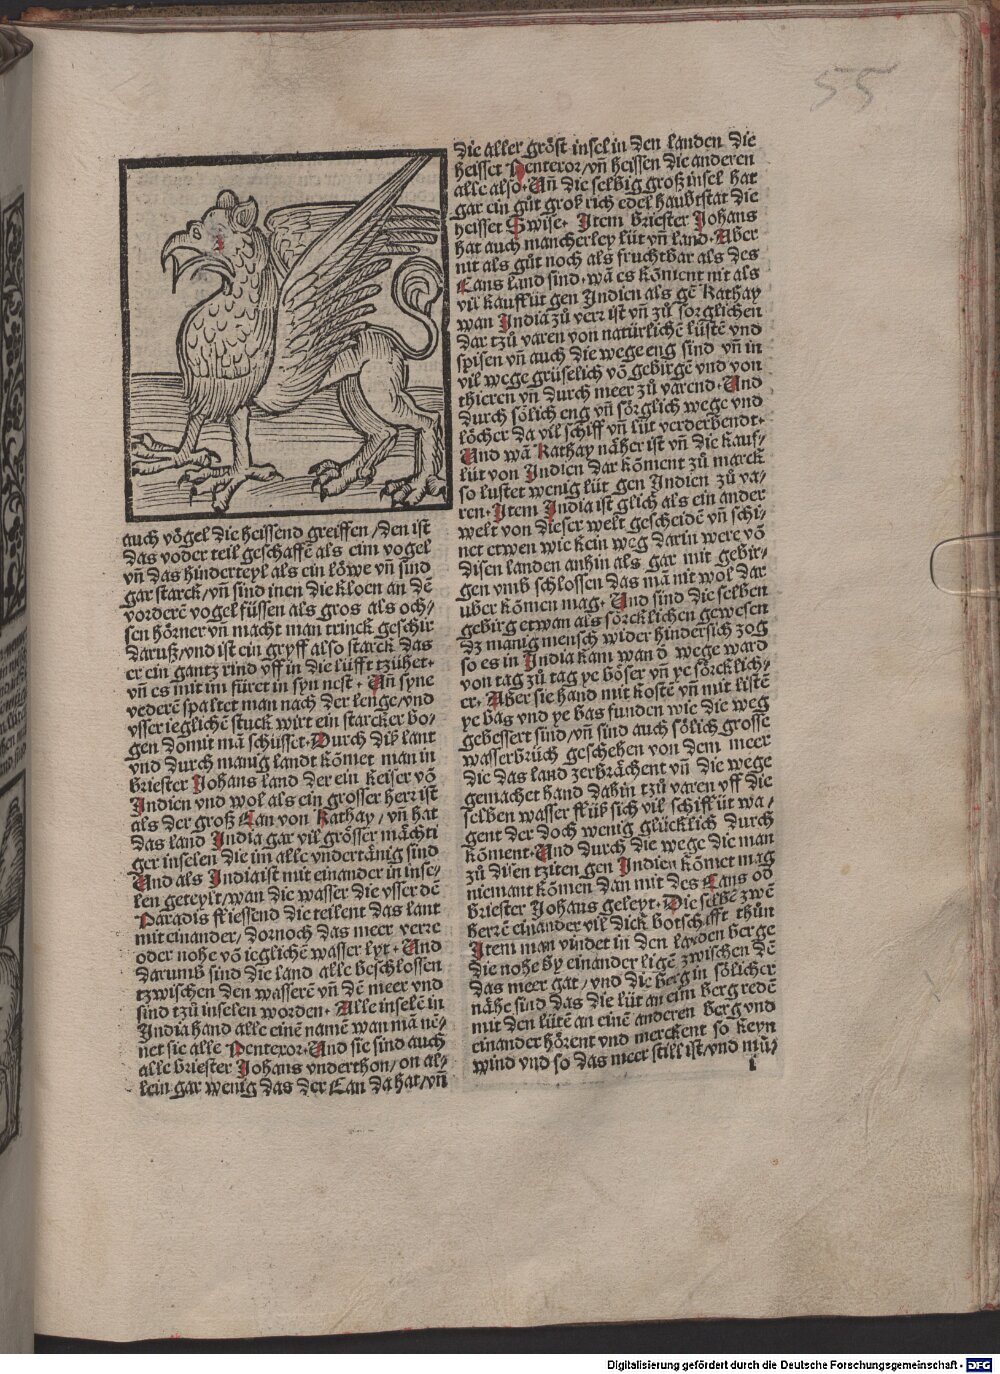 55
auch vögel die heissend greiffen / den ist
das voder teil geschaffē als eim vogel
vñ das hinderteyl als ein löwe vñ sind
gar starck / vñ sind inen die kloen an dē
vorderē vogel füssen als gros als och⸗
sen hörner vñ macht man trinck geschir
daruß / vnd ist ein gryff also starck das
er ein gantz rind vff in die lüfft tzühet.
vñ es mit im füret in syn nest. Uñ syne
vederē spaltet man nach der lenge / vnd
vsser ieglichē stuck wirt ein starcker bo⸗
gen domit mā schusset. Durch diß lant
vnd durch manig landt kōmet man in
briester Johans land der ein keiser vō
Indien vnd wol als ein grosser herr ist
als der groß Can von Kathay / vñ hat
das land India gar vil grösser mächti
ger inselen die im alle vndertänig sind
Und als India ist mit einander in inse⸗
len geteylt / wan die wasser die vsser dē
Paradis fliessend die teilent das lant
mit einander / dornoch das meer verre
oder nohe vō ieglichē wasser lyt. Und
darumb sind die land alle beschlossen
tzwischen den wasserē vñ dē meer vnd
sind tzů inselen worden. Alle inselē in
India hand alle einē namē wan mā nē⸗
net sie alle Pentexor. Und sie sind auch
alle briester Johans vnderthon / on al⸗
lein gar wenig das der Can da hat / vñ
die aller gröst insel in den landen die
heisset Pentexor / vñ heissen die anderen
alle also. Uñ die selbig groß insel hat
gar ein gůt groß rich edel haubtstat die
heisset Swise. Item briester Johans
hat auch mancherley lüt vñ land. Aber
nit als gůt noch als fruchtbar als des
Cans land sind. wā es kōment nit als
vil kaufflüt gen Indien als gē Kathay
wan India zů verr ist vñ zů sorglichen
dar tzů varen von natürlichē lüstē vnd
spisen vñ auch die wege eng sind vñ in
vil wege grüselich vō gebirgē vnd von
thieren vñ durch meer zů varend. Und
durch sölich eng vñ sörglich wege vnd
löcher da vil schiff vñ lüt verderbendt.
Und wā Kathay näher ist vñ die kauf⸗
lüt von Indien dar kōment zů marck
so lustet wenig lüt gen Indien zů va⸗
ren. Item India ist glich als ein ander
welt von dieser welt gescheidē vñ schi⸗
net etwen wie kein weg darin were vō
disen landen anhin als gar mit gebir⸗
gen vmb schlossen das mā nit wol dar
uber kōmen mag. Und sind die selben
gebirg etwan als sörcklichen gewesen
dz manig mensch wider hindersich zog
so es in India kam wan ď wege ward
von tag zů tag ye böser vñ ye sörcklich⸗
er. Aber sie hand mit kostē vñ mit listē
ye bas vnd ye bas funden wie die weg
gebessert sind / vñ sind auch sölich grosse
wasserbrüch geschehen von dem meer
die das land zerbrächent vñ die wege
gemachet hand dahin tzů varen vff die
selben wasser flüß sich vil schifflüt wa⸗
gent der doch wenig glücklich durch
kōment. Und durch die wege die man
zů disen tziten gen Indien kōmet mag
niemant kōmen dan mit des Cans oď
briester Johans geleyt. Die selbē zwē
herrē einander vil dick botschafft thůn
Item man vindet in den landen berge
die nohe by einander ligē zwischen dē
das meer gat / vnd die berg in sölicher
nähe sind das die lüt an eim berg redē
mit den lütē an einē anderen berg vnd
einander hörent vnd merckent so keyn
wind vnd so das meer still ist / vnd mü⸗
i
Digitalisierung gefördert durch die Deutsche Forschungsgemeinschaft - DFG